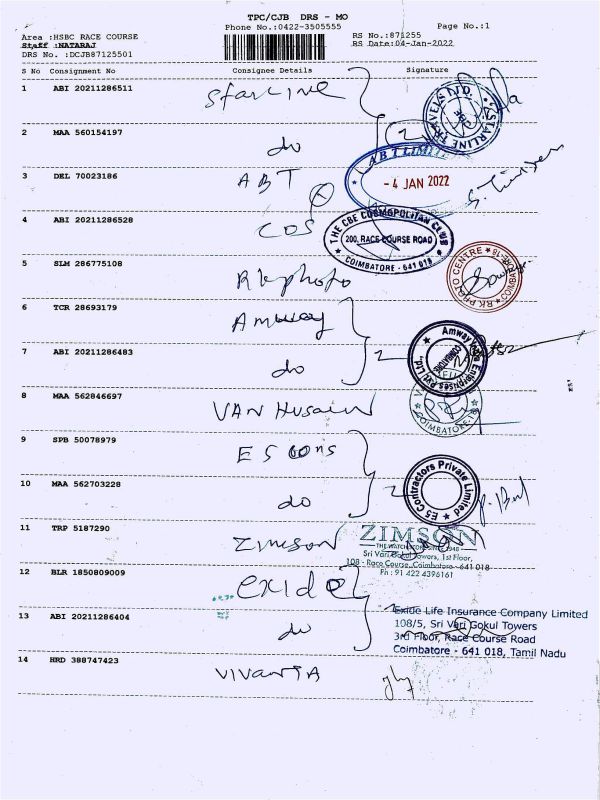 TPC/CJB DRS - MO
Phone No.:0422-3505555
Page No.:1
Area :HSBC RACE COURSE
Staff :NATARAJ
DRS No. :DCJB87125501
RS No.:871255
RS Date:04-Jan-2022
S No Consignment No Consignee Details Signature
1 ABI 20211286511 Starline
STARLINE TRAVELS
2 MAA 560154197 do 2
ABT LIMITED
3 DEL 70023186 ABT
- 4 JAN 2022
4 ABI 20211286528 COS
THE CBE COSMOPOLITAN CLUB
200, RACE COURSE ROAD
COIMBATORE - 641 018
5 SLM 286775108 Rkphoto
RK PHOTO CENTRE
6 TCR 28693179 Amway
7 ABI 20211286483 do 2
Amway India Enterprises Pvt Ltd
COIMBATORE
8 MAA 562846697 VAN Husain
COIMBATORE-18
9 SPB 50078979 ES cons
10 MAA 562703228 do 2
E5 Contractors Private Limited
11 TRP 5187290 Zimson
ZIMSON
Sri Vari Gokul Towers, 1st Floor,
108 - Race Course, Coimbatore - 641 018
Ph : 91 422 4396161
12 BLR 1850809009 exide
13 ABI 20211286404 do
Exide Life Insurance Company Limited
108/5, Sri Vari Gokul Towers
3rd Floor, Race Course Road
Coimbatore - 641 018, Tamil Nadu
14 HRD 388747423 VIVANTA